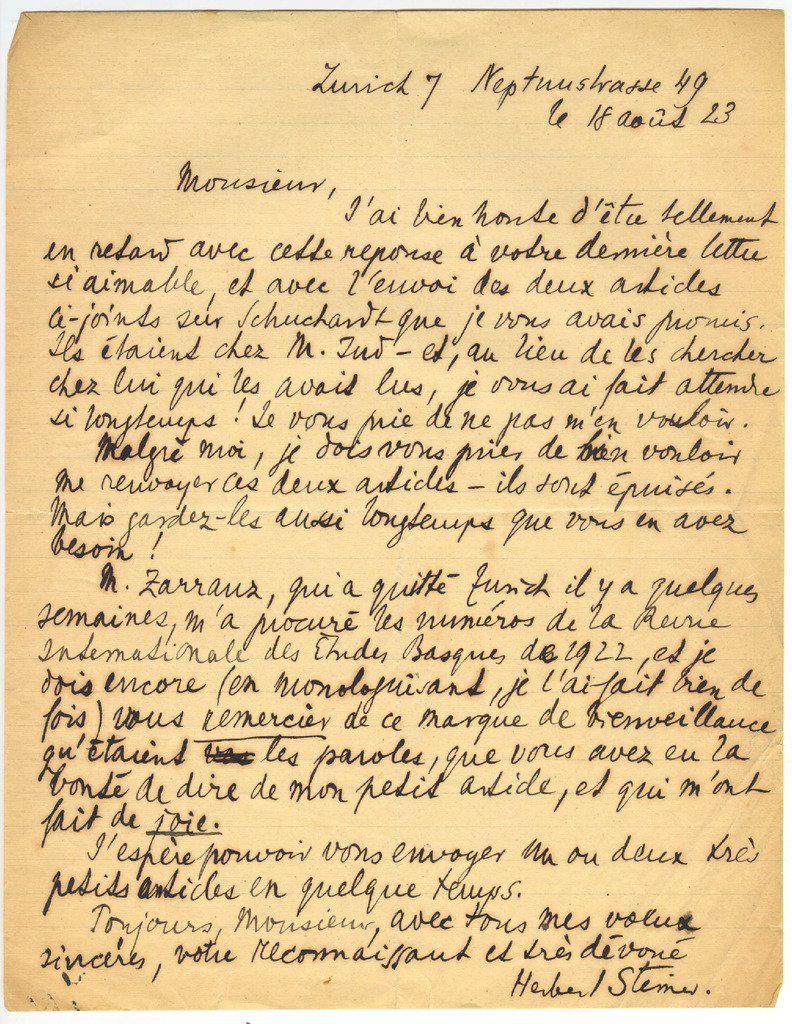 Zurich 7 Neptunstrasse 49
le 18 août 23
Monsieur,
J'ai bien honte d'être tellement
en retard avec cette reponse à votre dernière lettre
si aimable, et avec l'envoi des deux articles
ci-joints sur Schuchardt que je vous avais promis.
Ils étaient chez M. Jud – et, au lieu de les chercher
chez lui qui les avait lus, je vous ai fait attendre
si longtemps ! Je vous prie de ne pas m'en vouloir.
Malgré moi, je dois vous prier de bien vouloir
me renvoyer ces deux articles – ils sont épuisés.
Mais gardez-les aussi longtemps que vous en avez
besoin !
M. Zarranz, qui a quitté Zurich il y a quelques
semaines, m'a procuré les numéros de la Revue
Internationale des Études Basques de 1922, et je
dois encore (en monologuisant, je l'ai fait bien de
fois) vous remercier de ce marque de bienveillance
qu'étaient les paroles, que vous avez eu la
bonté de dire de mon petit article, et qui m'ont
fait de joie.
J'espère pouvoir vous envoyer un ou deux très
petits articles en quelque temps.
Toujours, Monsieur, avec tous mes voeux
sincères, votre reconnaissant et très dévoué
Herbert Steiner.